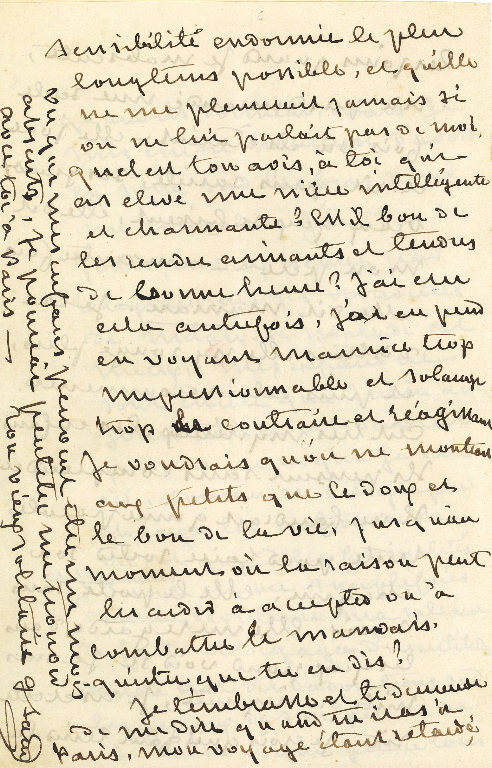 sensibilité endormie le plus
longtems possible, et qu'elle
ne me pleurerait jamais si
on ne lui parlait pas de moi.
quel est ton avis, à toi qui
as elevé une nièce intelligente
et charmante? Est-il bon de
les rendre aimants et tendres
de bonne heure? J'ai cru
cela autrefois, j'ai eu peur
en voyant Maurice trop
impressionnable et Solange
trop le contraire et réagissant
Je voudrais qu'on ne montrât
aux petits que le doux et
le bon de la vie, jusqu'au
moment où la raison peut
les aider à accepter ou à
combattre le mauvais.
qu'est ce que tu en dis?
Je t'embrasse et te demande
de me dire quand tu iras à
Paris, mon voyage étant retardé,
vu que mes enfans peuvent être un mois
absents, je pourrai peutetre me trouver
avec toi à Paris —
ton vieux solitaire G Sand